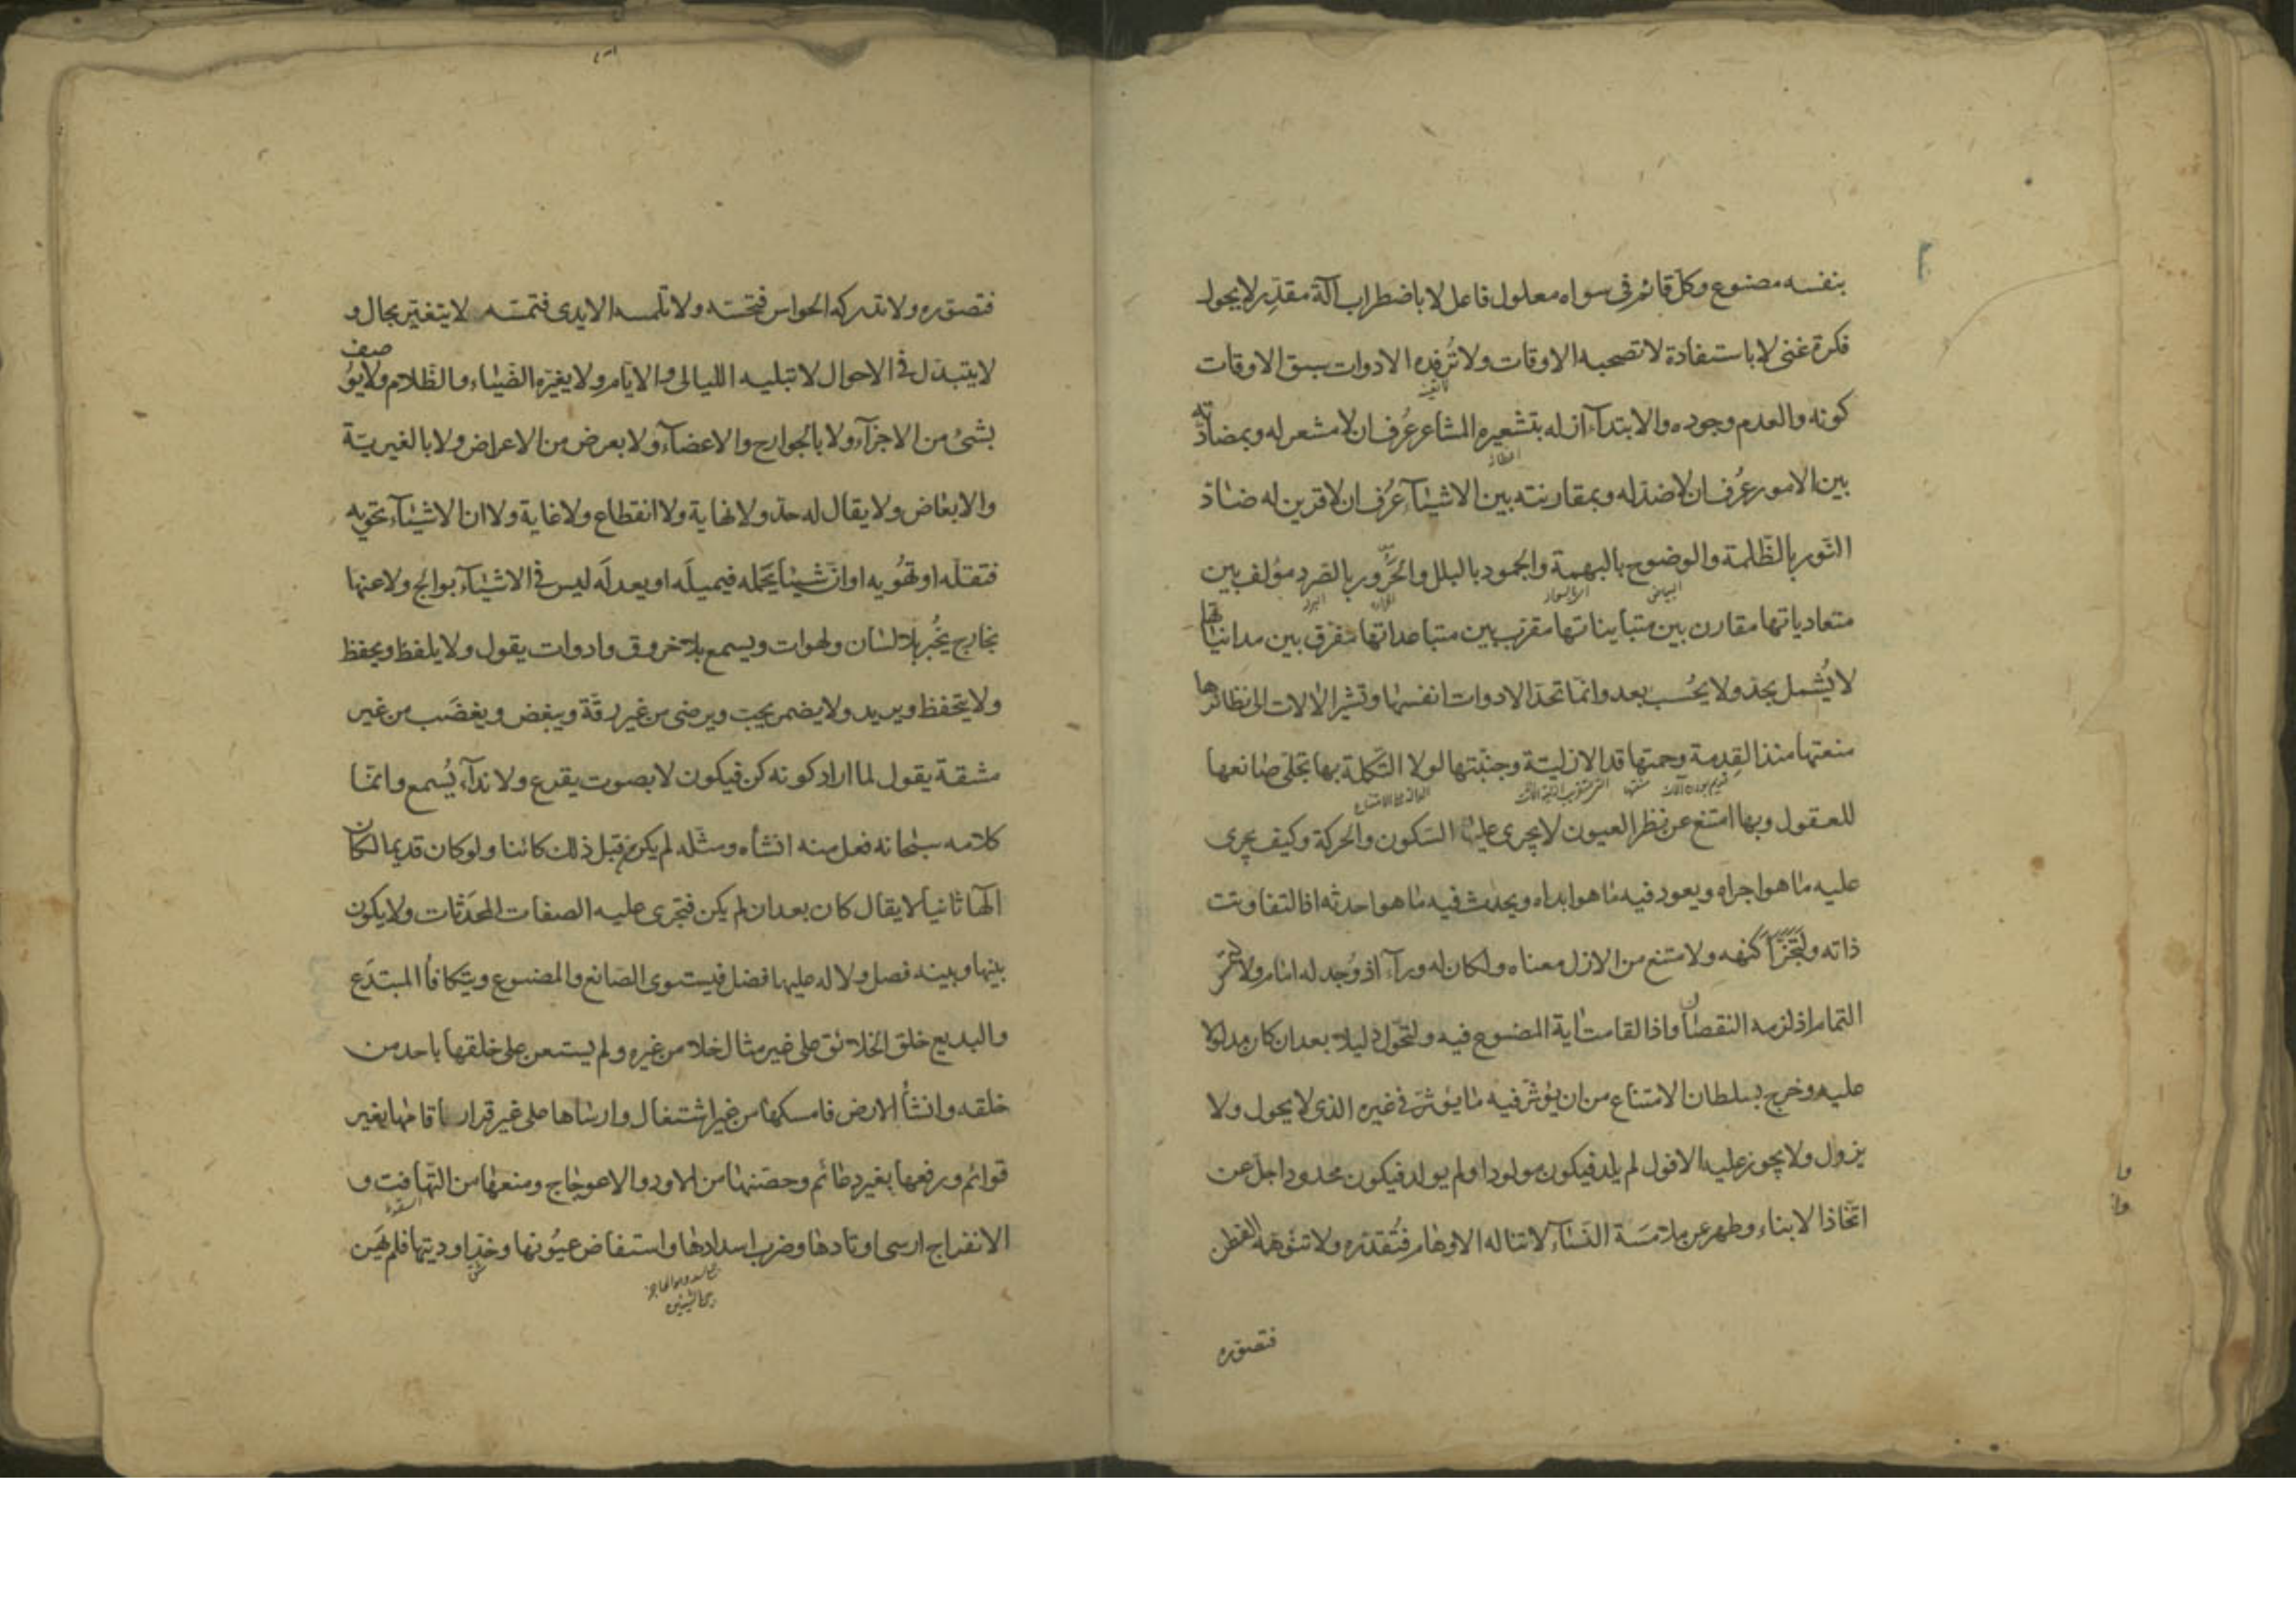 بنفسه مصنوع وكل قائم فى سواه معلول فاعل لا باضطراب آلة مقدر لا بجول
فكرة غنى لا باستفادة لا تصحبه الاوقات ولا تُرفِده الادوات سبق الاوقات
كونه والعدم وجوده والابتداء ازله بتشعيره المشاعر عُرف ان لا مشعر له وبمضادته
بين الامور عُرف ان لا ضد له وبمقارنته بين الاشيآء عُرف ان لا قرين له ضادّ
النّور بالظّلمة والوضوح بالبهمة والجمود بالبلل والحَرور بالصّرد مؤلف بين
متعادياتها مقارن بين متبايناتها مقرّب بين متباعداتها مفرّق بين مدانياتها
لا يُشمل بحدّ ولا يُحسب بعد وانّما تحدّ الادوات انفسها وتشير الالات الى نظائرها
منعتها منذ القِدمة وحمتها قد الازليّة وجنّبتها لولا التّكملة بها تجلّى صانعها
للعقول وبها امتنع عن نظر العيون لا يجرى عليه السّكون والحركة وكيف يجرى
عليه ما هو اجراه ويعود فيه ما هو ابداه ويحدث فيه ما هو احدثه اذا لتفاوتت
ذاته ولتجزّأ كنهه ولامتنع من الازل معناه ولكان له ورآء اذ وُجد له امام ولالتمس
التمام اذ لزمه النقصان واذا لقامت اية المصنوع فيه ولتحوّل دليلا بعد ان كان مدلولا
عليه وخرج بسلطان الامتناع من ان يؤثر فيه ما يؤثر فى غيره الذى لا يحول ولا
يزول ولا يجوز عليه الافول لم يلد فيكون مولودا ولم يولد فيكون محدودا جلّ عن
اتّخاذ الابناء وطهر عن ملامسة النّسآء لا تناله الاوهام فتُقدّره ولا تتوهّمه الفطن
فتصوّره
فتصوّره ولا تدركه الحواس فتحسّه ولا تلمسه الايدى فتمسّه لا يتغيّر بحال و
لا يتبدّل فى الاحوال لا تبليه الليالى والايام ولا يغيّره الضّياء والظّلام ولا يوصف
بشئ من الاجزآء ولا بالجوارح والاعضآء ولا بعرض من الاعراض ولا بالغيريّة
والابعاض ولا يقال له حدّ ولا نهاية ولا انقطاع ولا غاية ولا ان الاشيآء تحويه
فتقلّه او تُهويه او انّ شيئا يحمله فيميلَه او يعدلَه ليس فى الاشيآء بوالج ولا عنها
بخارج يُخبر بلا لسان ولهوات ويسمع بلا خروق وادوات يقول ولا يلفظ ويحفظ
ولا يتحفّظ ويريد ولا يضمر يحبّ ويرضى من غير رقّة ويبغض ويغضب من غير
مشقة يقول لما اراد كونه كن فيكون لا بصوت يقرع ولا ندآء يُسمع وانّما
كلامه سبحانه فعل منه انشأه ومثّله لم يكن من قبل ذلك كائنا ولو كان قديما لكان
الٓها ثانيا لا يقال كان بعد ان لم يكن فتجرى عليه الصفات المحدَثات ولا يكون
بينها وبينه فصل ولا له عليها فضل فيستوى الصّانع والمصنوع ويتكافأ المبتدَع
والبديع خلق الخلائق على غير مثال خلا من غيره ولم يستعن على خلقها باحد من
خلقه وانشأ الارض فامسكها من غير اشتغال وارساها على غير قرار واقامها بغير
قوائم ورفعها بغير دعائم وحصّنها من الاود والاعوجاج ومنعها من التّهافت و
الانفراج ارسى اوتادها وضرب اسدادها واستفاض عيُونها وخدّ اوديتها فلم يَهِن